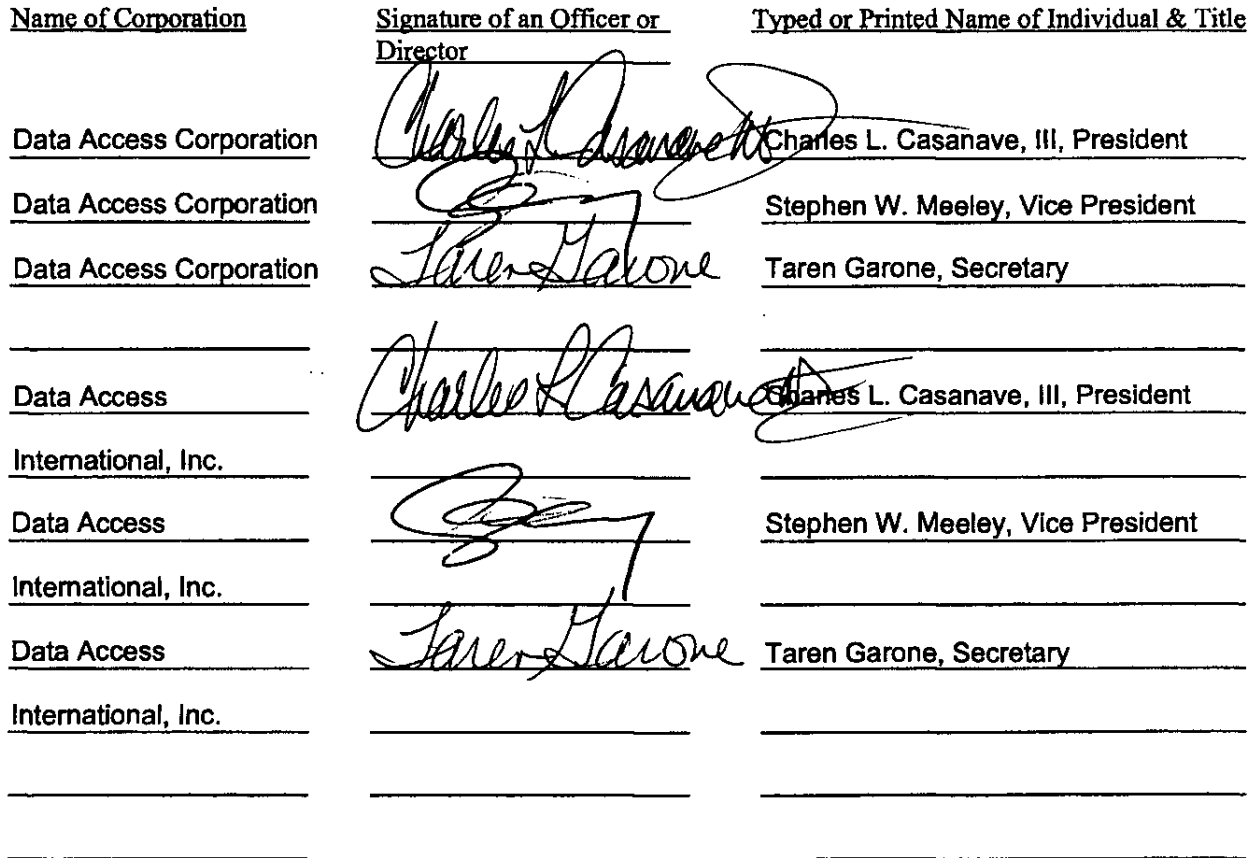 Name of Corporation Signature of an Officer or Director Typed or Printed Name of Individual & Title
Data Access Corporation Charles L Casanave III Charles L. Casanave, III, President
Data Access Corporation Stephen W. Meeley, Vice President
Data Access Corporation Taren Garone Taren Garone, Secretary
Data Access Charles L Casanave Charles L. Casanave, III, President
International, Inc.
Data Access Stephen W. Meeley, Vice President
International, Inc.
Data Access Taren Garone Taren Garone, Secretary
International, Inc.